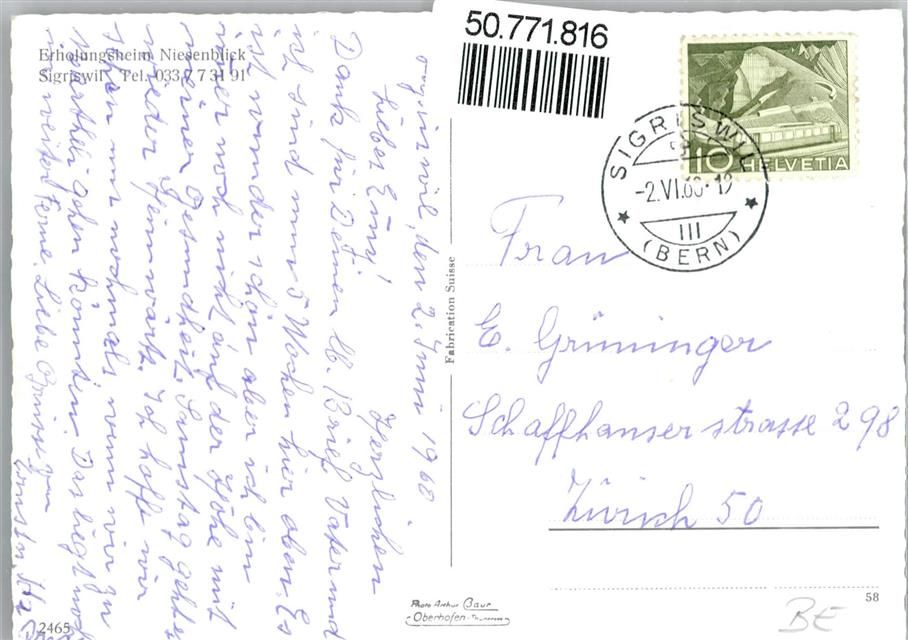 Erholungsheim Niesenblick
Sigriswil Tel. 033 7 73 1 91
50.771.816
HELVETIA
10
SIGRISWIL
-2.VI.60-19
III
(BERN)
den 2. Juni 1960.
Liebe Emy! Herzlichen
Dank für Deinen lb. Brief. Vater und
ich sind nun 5 Wochen hier oben. Es
ist wunderschön aber ich bin
immer noch nicht auf der Höhe mit
meiner Gesundheit. Samstag geht es
wieder heimwärts. Ich hoffe wir
nur nochmals, wenn wir zu
gehen könnten. Das liegt noch
in weiter Ferne. Liebe Grüsse von
Fabrication Suisse
Frau
E. Grüninger
Schaffhauserstrasse 298
Zürich 50
58
Photo Arthur Baur
Oberhofen-Thunersee
2465
BE